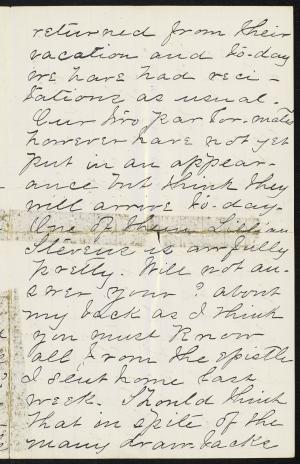 returned from their
vacation and to-day
we have had reci-
tations as usual.
Our two parlor-mates
however have not yet
put in an appear-
ance but think they
will arrive to-day.
One of them Lillian
Stevens is awfully
pretty. Will not an-
swer your ? about
my back as I think
you must know
all from the epistle
I sent home last
week. Should think
that in spite of the
many draw-backs